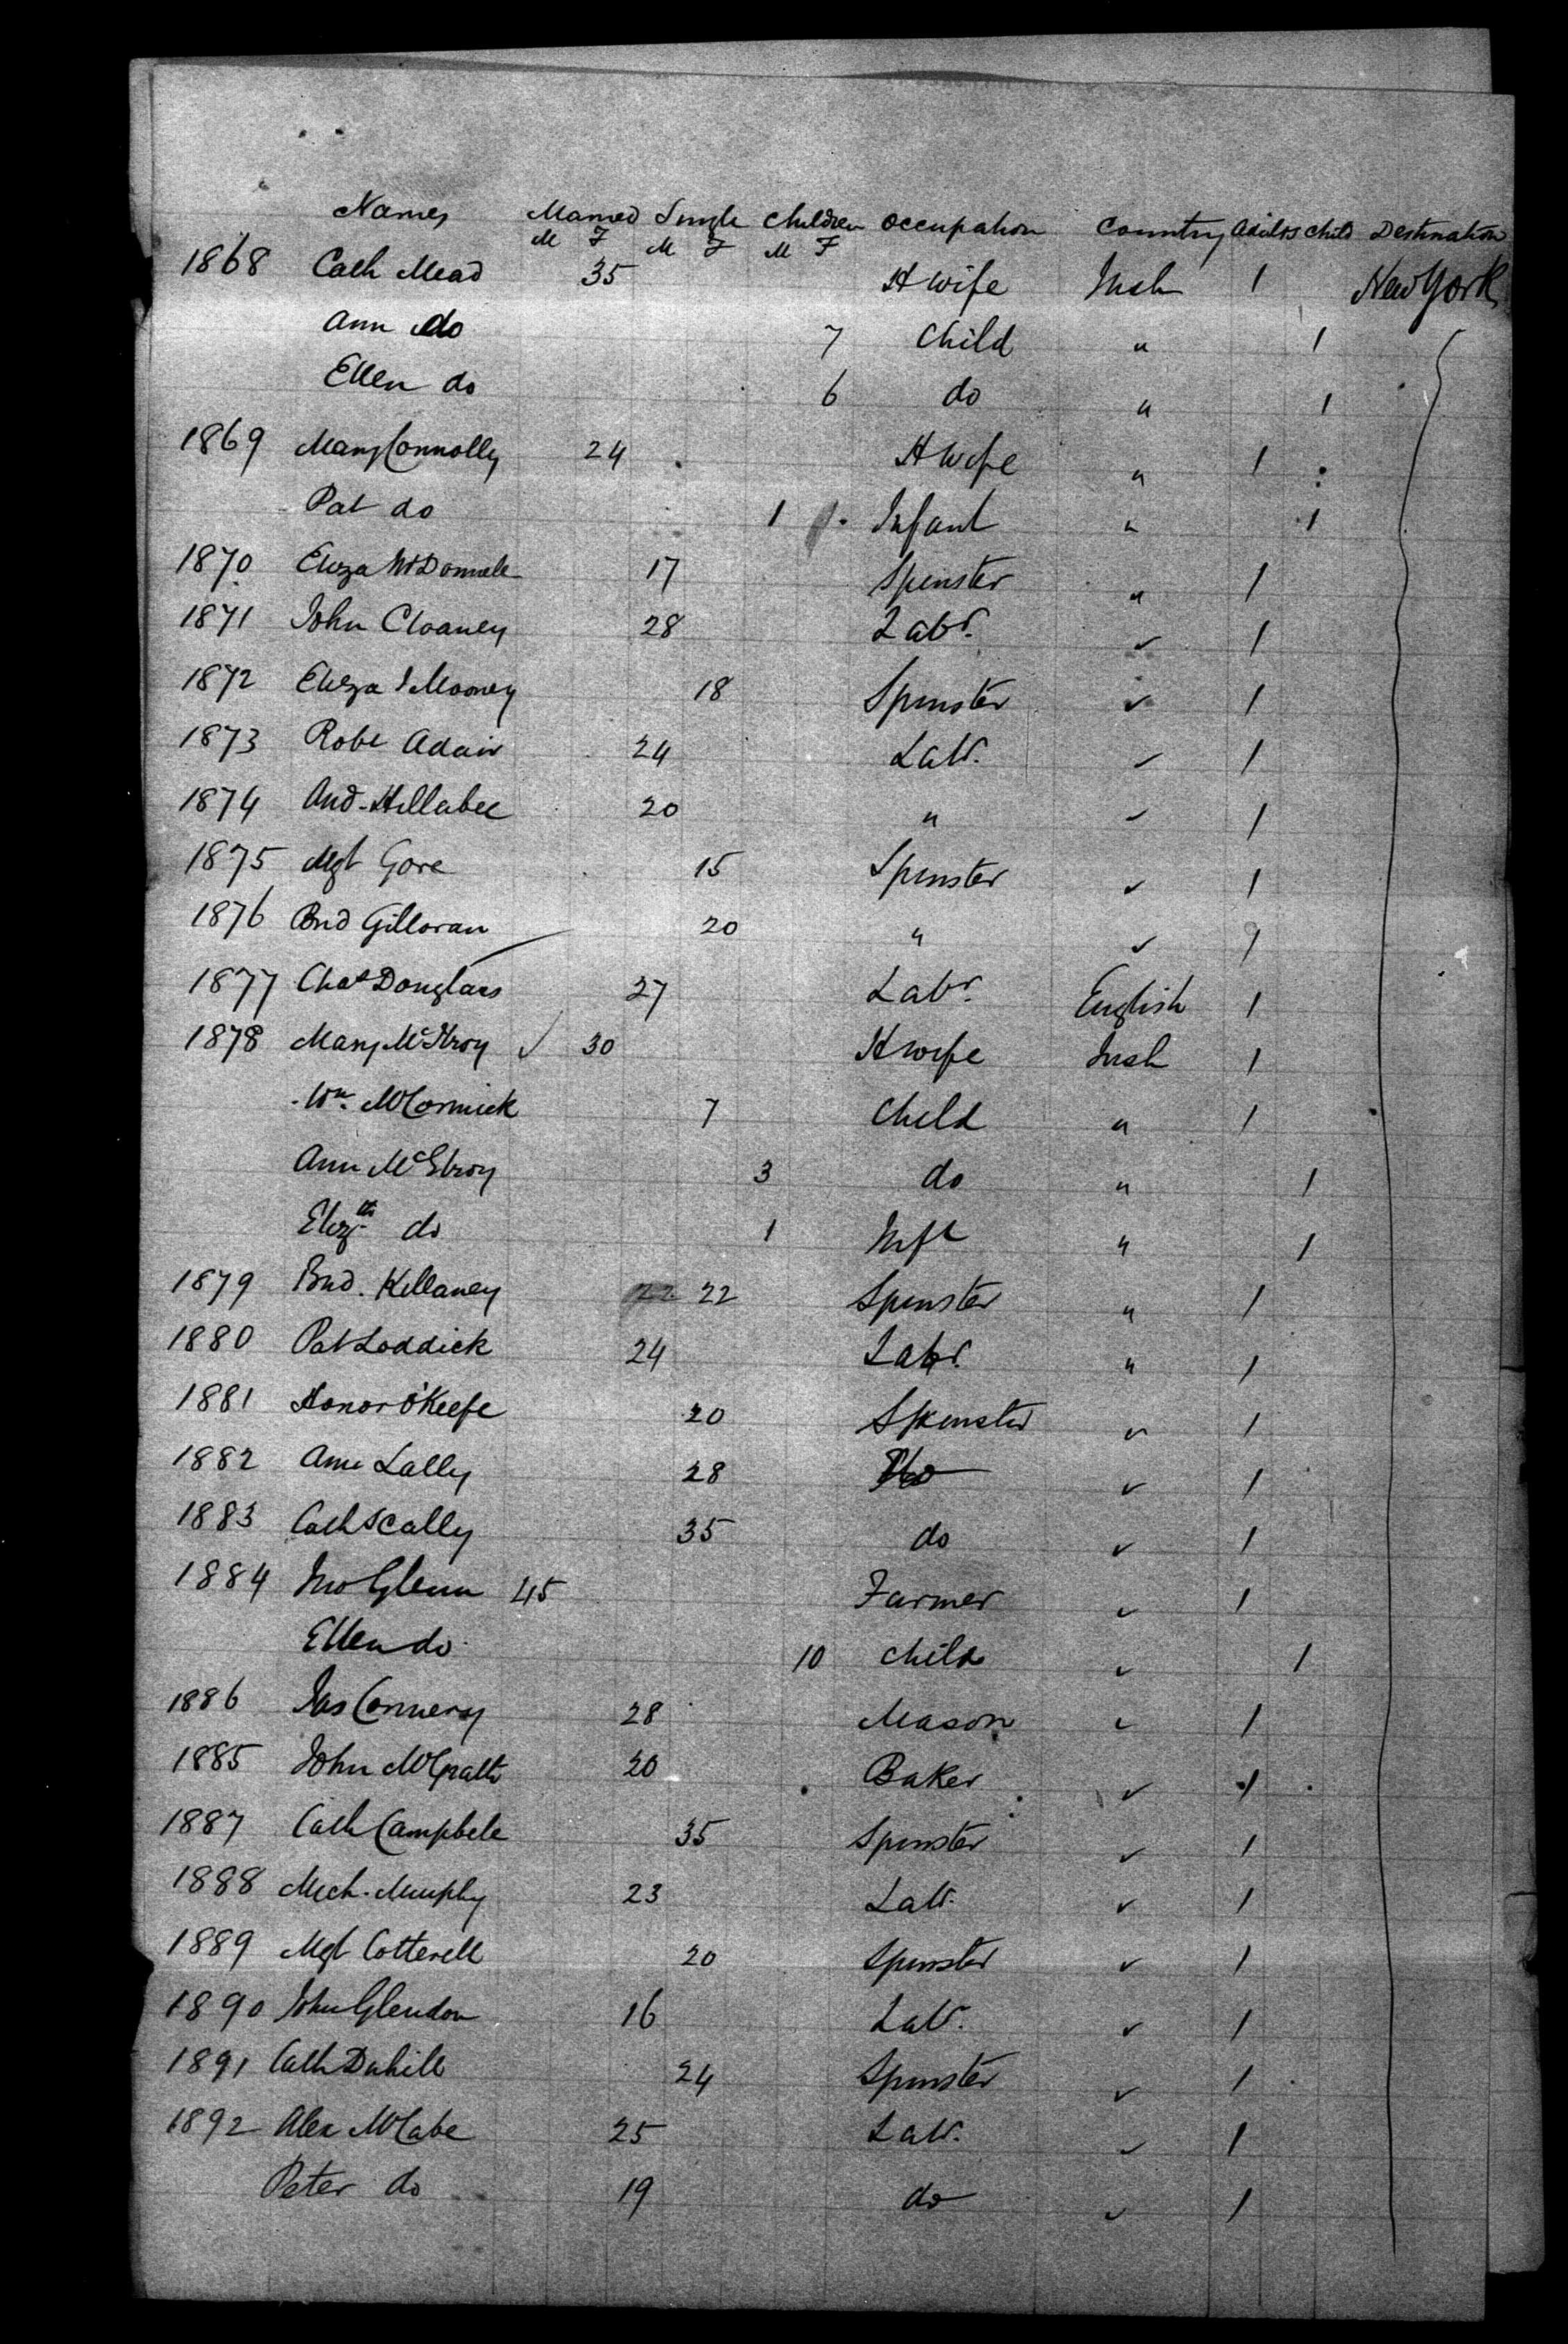 Names Married Single Children Occupation Country Adults Child Destination
M F M F M F
1868 Cath Mead 35 H wife Irish 1 New York
Ann do 7 Child " 1
Ellen do 6 do " 1
1869 Mary Connolly 24 H wife " 1
Pat do 1 Infant " 1
1870 Eliza McDonnell 17 Spinster " 1
1871 John Cloaney 28 Labr. " 1
1872 Eliza J Mooney 18 Spinster " 1
1873 Robt Adair 24 Labr. " 1
1874 And. Hillabee 20 " " 1
1875 Mgt Gore 15 Spinster " 1
1876 Brid Gilloran 20 " " 1
1877 Chas Douglass 27 Labr. English 1
1878 Mary McIlroy ✓ 30 H wife Irish 1
Wm. McCormick 7 Child " 1
Ann McElroy 3 do " 1
Elizth do 1 Inft " 1
1879 Brid. Killaney 22 22 Spinster " 1
1880 Pat Loddick 24 Labr. " 1
1881 Honor O'Keefe 20 Spinster " 1
1882 Ann Lally 28 Do " 1
1883 Cath Scally 35 do " 1
1884 Jno Glenn 45 Farmer " 1
Ellen do 10 Child " 1
1886 Jas Connery 28 Mason " 1
1885 John McGrath 20 Baker " 1
1887 Cath Campbell 35 Spinster " 1
1888 Mich. Murphy 23 Labr. " 1
1889 Mgt Cotterell 20 Spinster " 1
1890 John Glendon 16 Labr. " 1
1891 Cath Duhill 24 Spinster " 1
1892 Alex McCabe 25 Labr. " 1
Peter do 19 do " 1